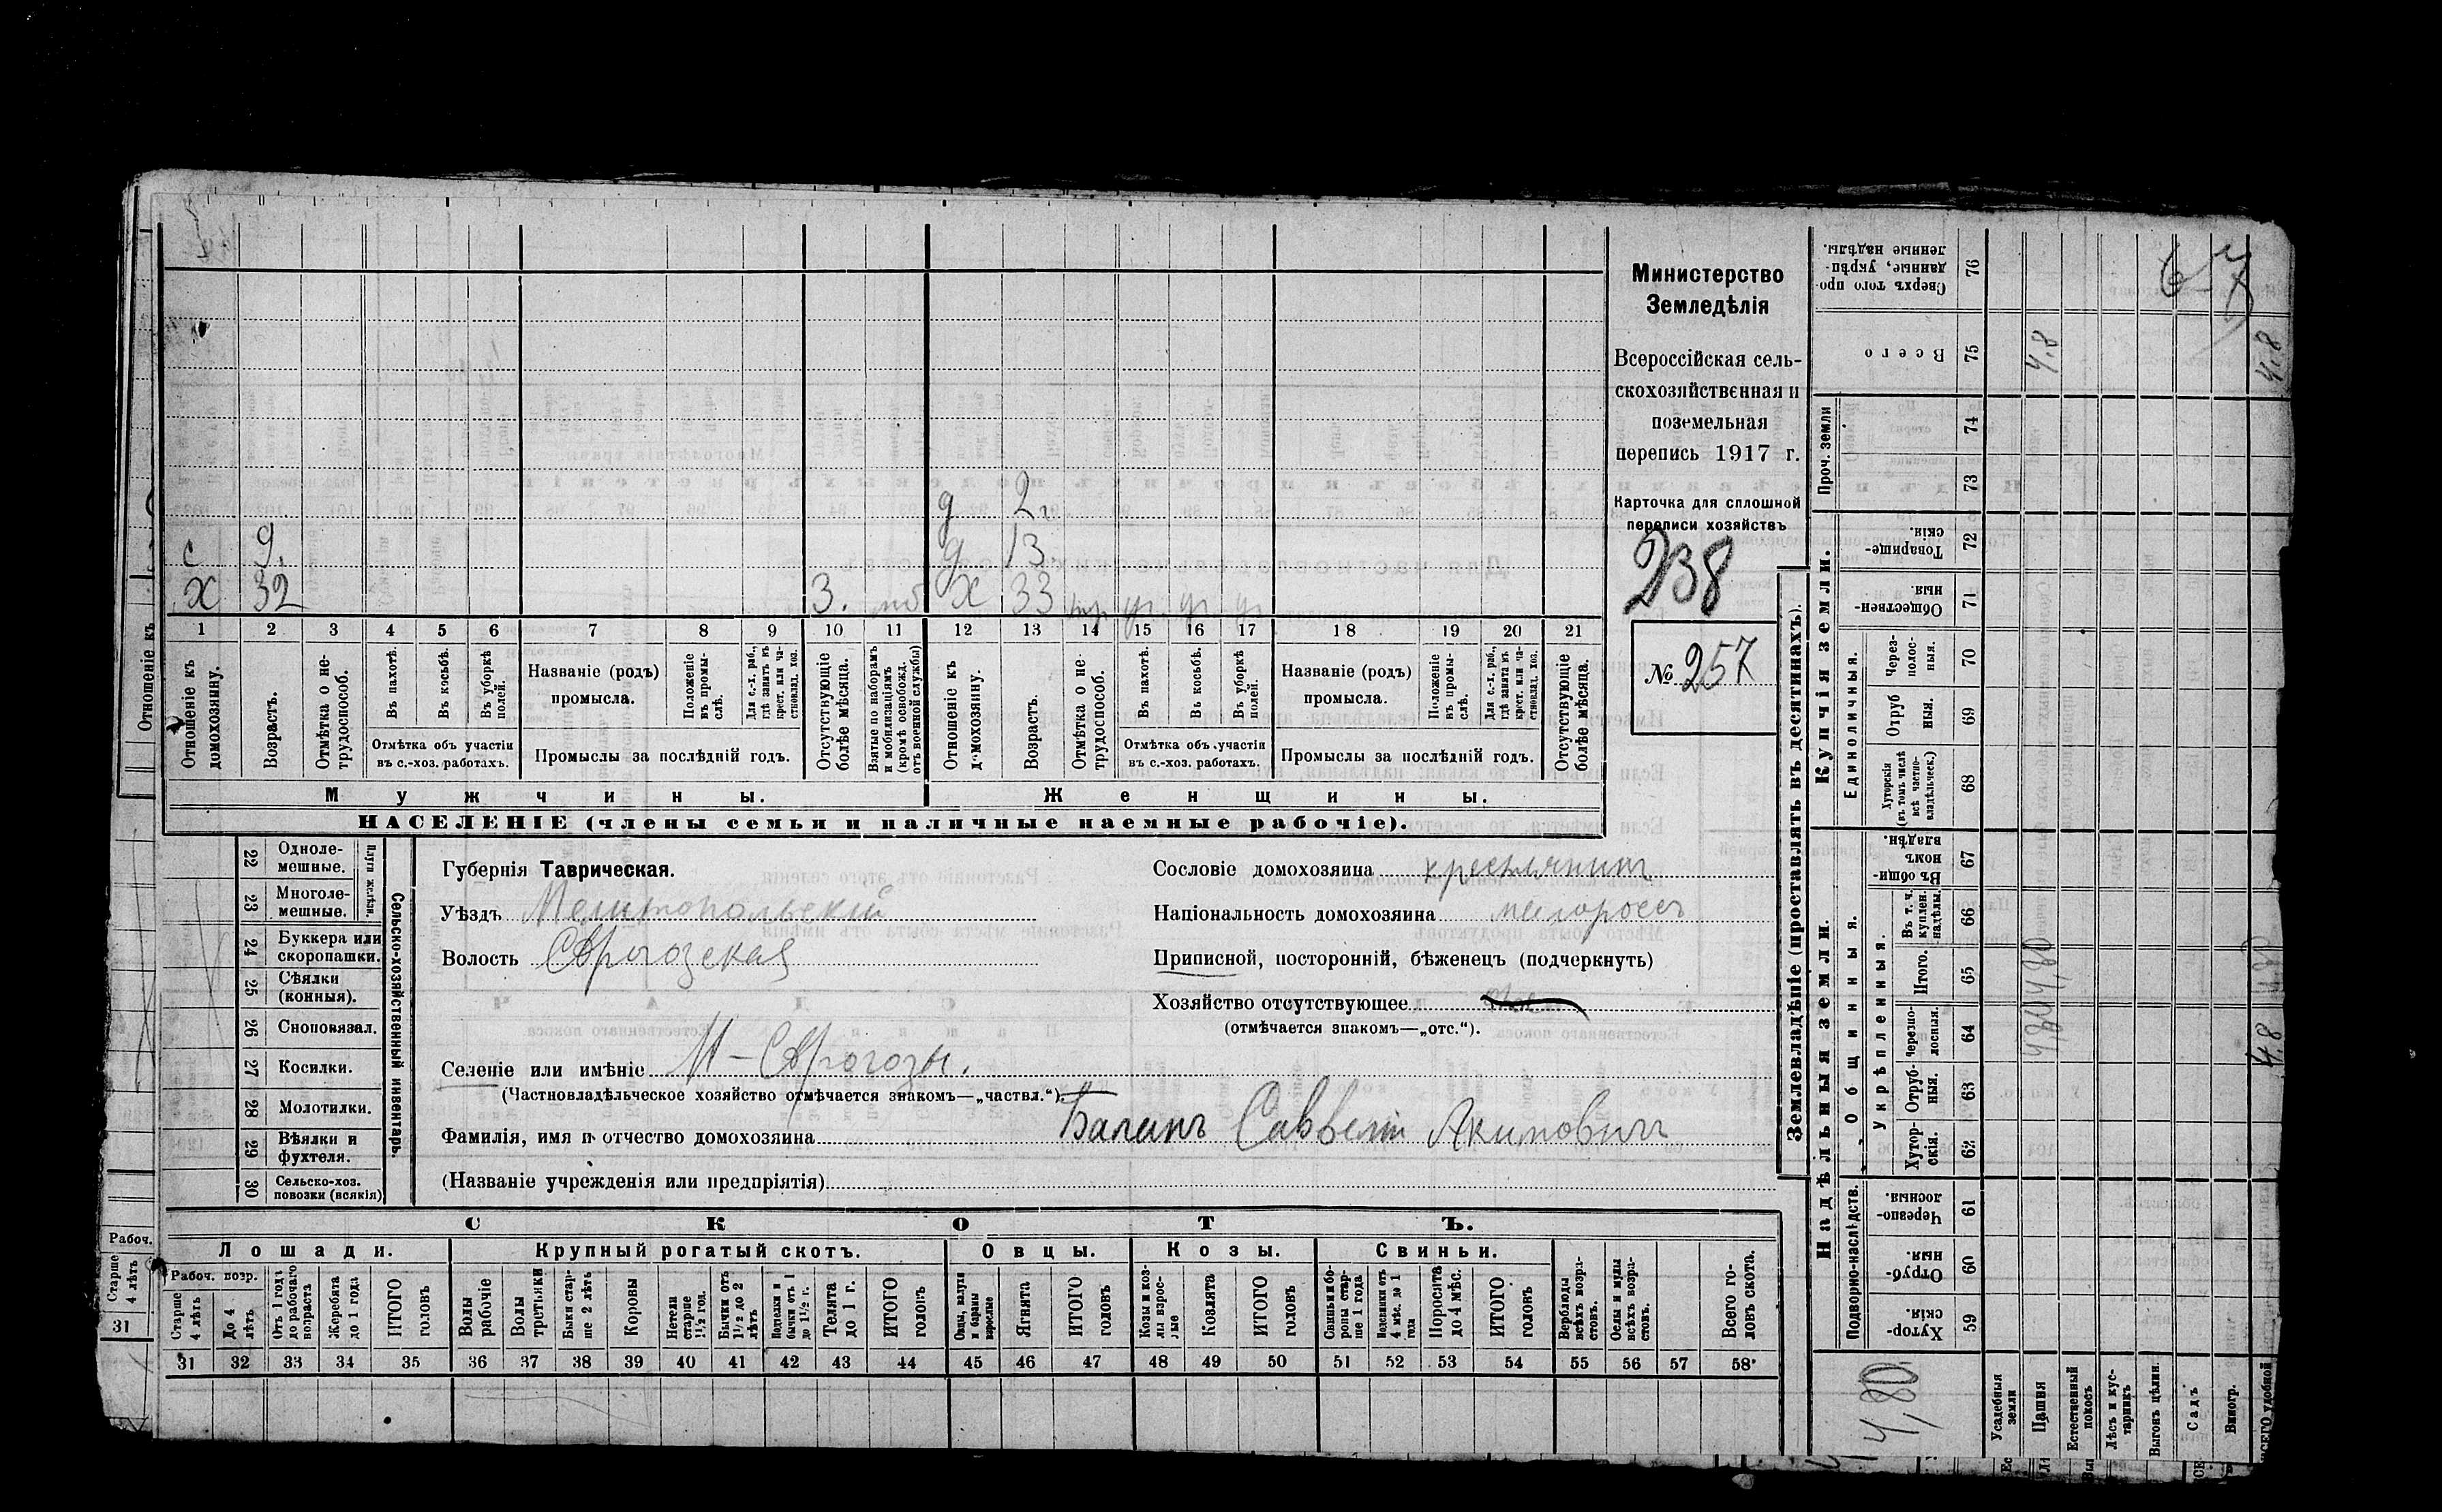 Министерство
Земледѣлія
Всероссійская сель-
скохозяйственная и
поземельная
перепись 1917 г.
Карточка для сплошной
переписи хозяйствъ
238
№ 257
д 2
с 9. д 13
х 32 3. мб х 33
1 2 3 4 5 6 7 8 9 10 11 12 13 14 15 16 17 18 19 20 21
Отношеніе къ домохозяину.
Возрастъ.
Отмѣтка о не-трудоспособ.
Въ пахотѣ.
Въ косьбѣ.
Въ уборкѣ полей.
Отмѣтка объ участіи
въ с.-хоз. работахъ.
Названіе (родъ)
промысла.
Положеніе въ промы-слѣ.
Для с.-х. раб., гдѣ занятъ въ крест. или ча-стновлад. хоз.
Промыслы за послѣдній годъ.
Отсутствующіе болѣе мѣсяца.
Взятые по наборамъ и мобилизаціямъ (кромѣ освобожд. отъ военной службы)
Отношеніе къ домохозяину.
Возрастъ.
Отмѣтка о не трудоспособ.
Въ пахотѣ.
Въ косьбѣ.
Въ уборкѣ полей.
Отмѣтка объ участіи
въ с.-хоз. работахъ.
Названіе (родъ)
промысла.
Положеніе въ промы-слѣ.
Для с.-х. раб., гдѣ занятъ въ крест. или ча-стновлад. хоз.
Промыслы за послѣдній годъ.
Отсутствующіе болѣе мѣсяца.
Мужчины. Женщины.
НАСЕЛЕНІЕ (члены семьи и наличные наемные рабочіе).
22 Одноле-мешные.
23 Многоле-мешные.
Плуги желѣзн.
24 Буккера или скоропашки.
25 Сѣялки (конныя).
26 Сноповязал.
27 Косилки.
28 Молотилки.
29 Вѣялки и фухтеля.
30 Сельско-хоз. повозки (всякія)
Сельско-хозяйственный инвентарь.
Губернія Таврическая.
Уѣздъ Мелитопольскій
Волость
Сословіе домохозяина крестьянинъ
Національность домохозяина малороссъ
Приписной, посторонній, бѣженецъ (подчеркнуть)
Хозяйство отсутствующее
(отмѣчается знакомъ—„отс.“).
Селеніе или имѣніе
(Частновладѣльческое хозяйство отмѣчается знакомъ—„частвл.“).
Фамилія, имя и отчество домохозяина Баланъ Савелій Акимовичъ
(Названіе учрежденія или предпріятія)
СКОТЪ.
Лошади. Крупный рогатый скотъ. Овцы. Козы. Свиньи.
Рабоч. возр.
Старше 4 лѣтъ
До 4 лѣтъ
Отъ 1 года до рабочаго возраста
Жеребята до 1 года
ИТОГО головъ
Волы рабочіе
Волы третьяки
Быки стар-ше 2 лѣтъ
Коровы
Нетели старше 1½ год.
Бычки отъ 1½ до 2 лѣтъ
Подтелки и бычки отъ 1 до 1½ г.
Телята до 1 г.
ИТОГО головъ
Овцы, валухи и бараны взрослые
Ягнята
ИТОГО головъ
Козы и коз-лы взрос-лые
Козлята
ИТОГО головъ
Свиньи и бо-ровы стар-ше 1 года
Подсвинки отъ 4 мѣс. до 1 года
Поросята до 4 мѣс.
ИТОГО головъ
Верблюды всѣхъ возра-стовъ.
Ослы и мулы всѣхъ возра-стовъ.
Всего го-ловъ скота.
31 32 33 34 35 36 37 38 39 40 41 42 43 44 45 46 47 48 49 50 51 52 53 54 55 56 57 58
Землевладѣніе (проставлять въ десятинахъ).
Купчія земли.
Надѣльныя земли.
Сверхъ того про-данные, укрѣп-ленные надѣлы. 76
Всего 75 4,8 4,8
Проч. земли 74 73
Товарище-скія. 72
Обществен-ныя. 71
Единоличныя.
Через-полос-ныя. 70
Отруб ныя. 69
Хуторскія (въ томъ числѣ всѣ частно-владѣльческ.) 68
Въ общин-номъ владѣн. 67
Общинныя.
Укрѣпленныя.
Въ т. ч. куплен. надѣлы. 66
Итого. 65
Черезпо-лосныя. 64
Отруб-ныя. 63
Хутор-скія. 62
Подворно-наслѣдств.
Черезпо-лосныя. 61
Отруб-ныя. 60
Хутор-скія. 59
4,80
Усадебныя земли
Пашня
Естественный покосъ
Лѣсъ и кус-тарникъ
Выгонъ цѣлин.
Садъ
Виногр.
67
Отношеніе къ
Рабоч.
Старше 4 лѣтъ
31